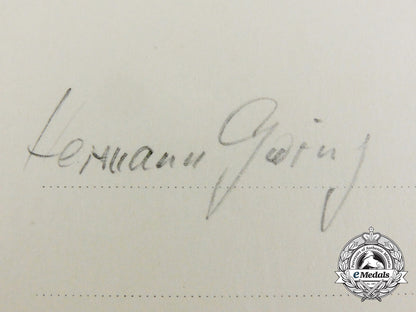 Hermann Göring
eMedals